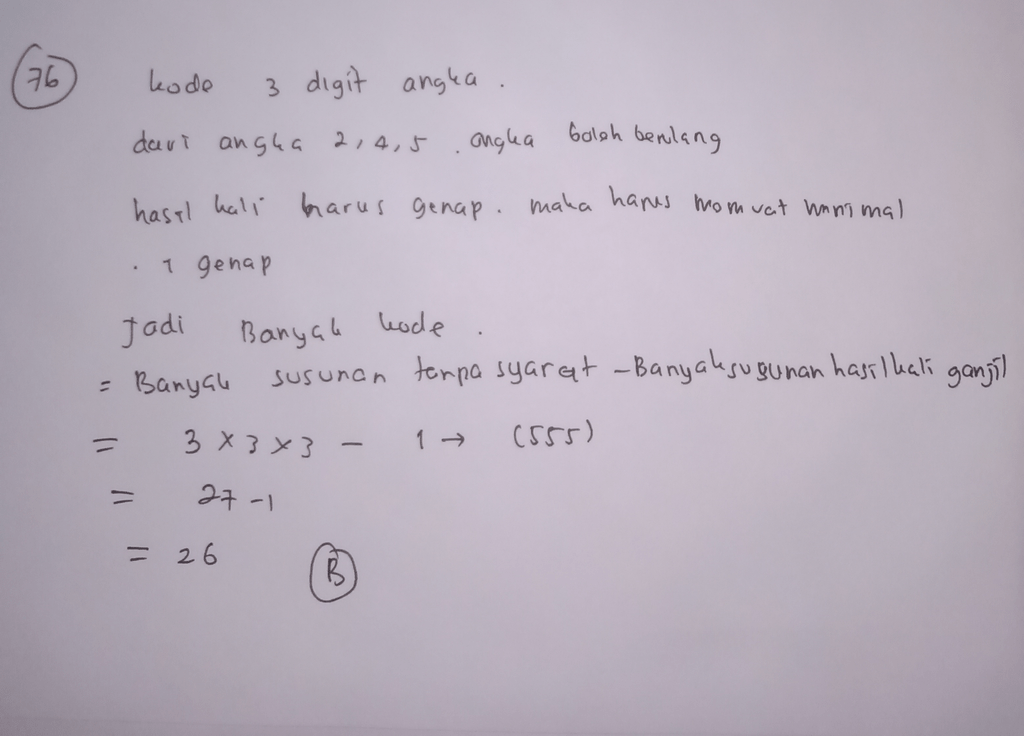 76
kode 3 digit angka .
dari angka 2,4,5 . angka boleh berulang
hasil kali harus genap . maka harus memuat minimal
. 1 genap
Jadi Banyak kode .
= Banyak susunan tanpa syarat - Banyak susunan hasil kali ganjil
= 3 × 3 × 3 - 1 → (555)
= 27 - 1
= 26 B